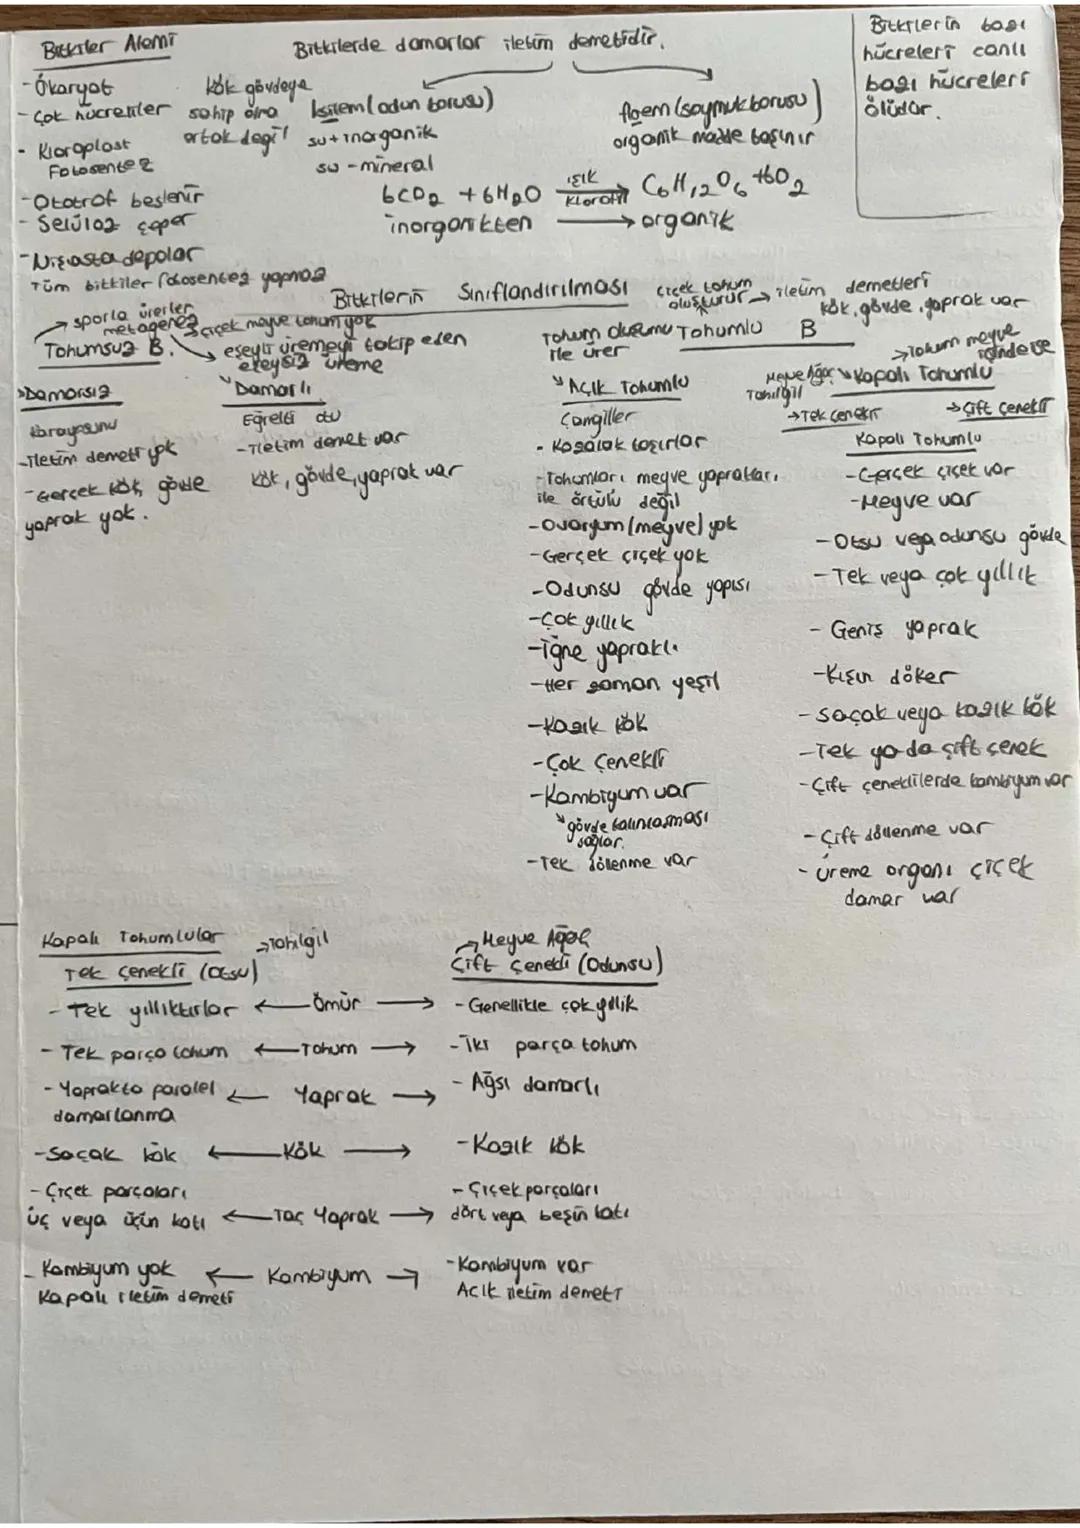 Bitkiler Alemi
Bitkilerde damarlar iletim demetidir.
Bitkilerin bazı
hücreleri canlı
bazı hücreleri
ölüdür.
- Ökaryot
- Çok hücreliler
- Kloroplast
Fotosentez
- Ototrof beslenir
- Selüloz çeper
- Nişasta depolar
Tüm bitkiler fotosentez yapmaz
kök gövdeye
sahip olma
ortak değil
ksilem (odun borusu)
su + inorganik
su - mineral
floem (soymuk borusu)
organik madde taşınır
6CO2 + 6H2O ışık klorofil → C6H12O6 + 6O2
inorganikten → organik
Bitkilerin Sınıflandırılması
→ sporla ürerler
metagenez
→ çiçek meyve tohum yok
Tohumsuz B.
→ eşeyli üremeyi takip eden
eşeysiz üreme
→ Damarsız
Karayosunu
- İletim demeti yok
- Gerçek kök, gövde
yaprak yok.
Damarlı
Eğrelti otu
- İletim demet var
kök, gövde, yaprak var
çiçek tohum
oluşturur
→ iletim demetleri
kök, gövde, yaprak var
Tohum durumu
ile ürer
Tohumlu B
Açık Tohumlu
Çamgiller
- Kozalak taşırlar
- Tohumları meyve yaprakları
ile örtülü değil
- Ovaryum (meyve) yok
- Gerçek çiçek yok
- Odunsu gövde yapısı
- Çok yıllık
- İğne yapraklı
- Her zaman yeşil
- Kazık kök
- Çok Çenekli
- Kambiyum var
gövde kalınlaşması
sağlar.
- Tek döllenme var
→ Tohum meyve
içinde ise
Kapalı Tohumlu
Meyve Ağaç
Tahılgil
→ Tek çenekli
→ Çift Çenekli
Kapalı Tohumlu
- Gerçek çiçek var
- Meyve var
- Otsu veya odunsu gövde
- Tek veya çok yıllık
- Geniş yaprak
- Kışın döker
- saçak veya kazık kök
- Tek ya da çift çenek
- Çift çeneklilerde kambiyum var
- Çift döllenme var
- Üreme organı çiçek
damar var
Kapalı Tohumlular
→ Tahılgil
Tek Çenekli (Otsu)
→ Meyve Ağaç
Çift Çenekli (Odunsu)
- Tek yıllıktırlar ← Ömür → - Genellikle çok yıllık
- Tek parça tohum ← Tohum → - İki parça tohum
- Yaprakta paralel ← Yaprak → - Ağsı damarlı
damarlanma
- Saçak kök ← Kök → - Kazık kök
- Çiçek parçaları
üç veya üçün katı ← Taç Yaprak →
- Çiçek parçaları
dört veya beşin katı
- Kambiyum yok ← Kambiyum → - Kambiyum var
Kapalı iletim demeti
Açık iletim demeti